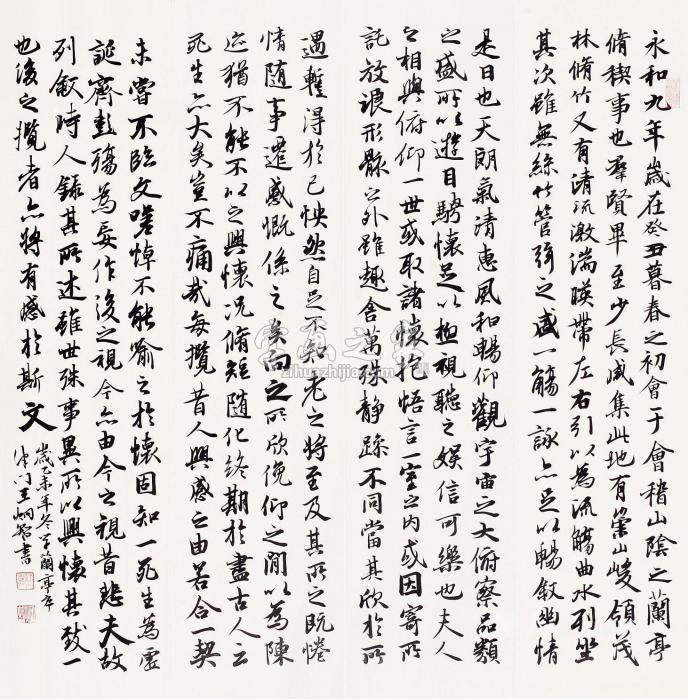 永和九年歲在癸丑暮春之初會于會稽山陰之蘭亭
脩禊事也羣賢畢至少長咸集此地有崇山峻領茂
林脩竹又有清流激湍暎帶左右引以為流觴曲水列坐
其次雖無絲竹管弦之盛一觴一詠亦足以暢敘幽情
是日也天朗氣清惠風和暢仰觀宇宙之大俯察品類
之盛所以遊目騁懷足以極視聽之娛信可樂也夫人
之相與俯仰一世或取諸懷抱悟言一室之內或因寄所
託放浪形骸之外雖趣舍萬殊静躁不同當其欣於所
遇暫得於己怏然自足不知老之將至及其所之既惓
情隨事遷感慨係之矣向之所欣俛仰之閒以為陳
迹猶不能不以之興懷況脩短隨化終期於盡古人云
死生亦大矣豈不痛哉每攬昔人興感之由若合一契
未嘗不臨文嗟悼不能喻之於懷固知一死生為虛
誕齊彭殤為妄作後之視今亦由今之視昔悲夫故
列敘時人錄其所述雖世殊事異所以興懷其致一
也後之攬者亦將有感於斯文
歲乙未年冬蘭亭序
王炯智書
字画之家
zihuazhijia.com